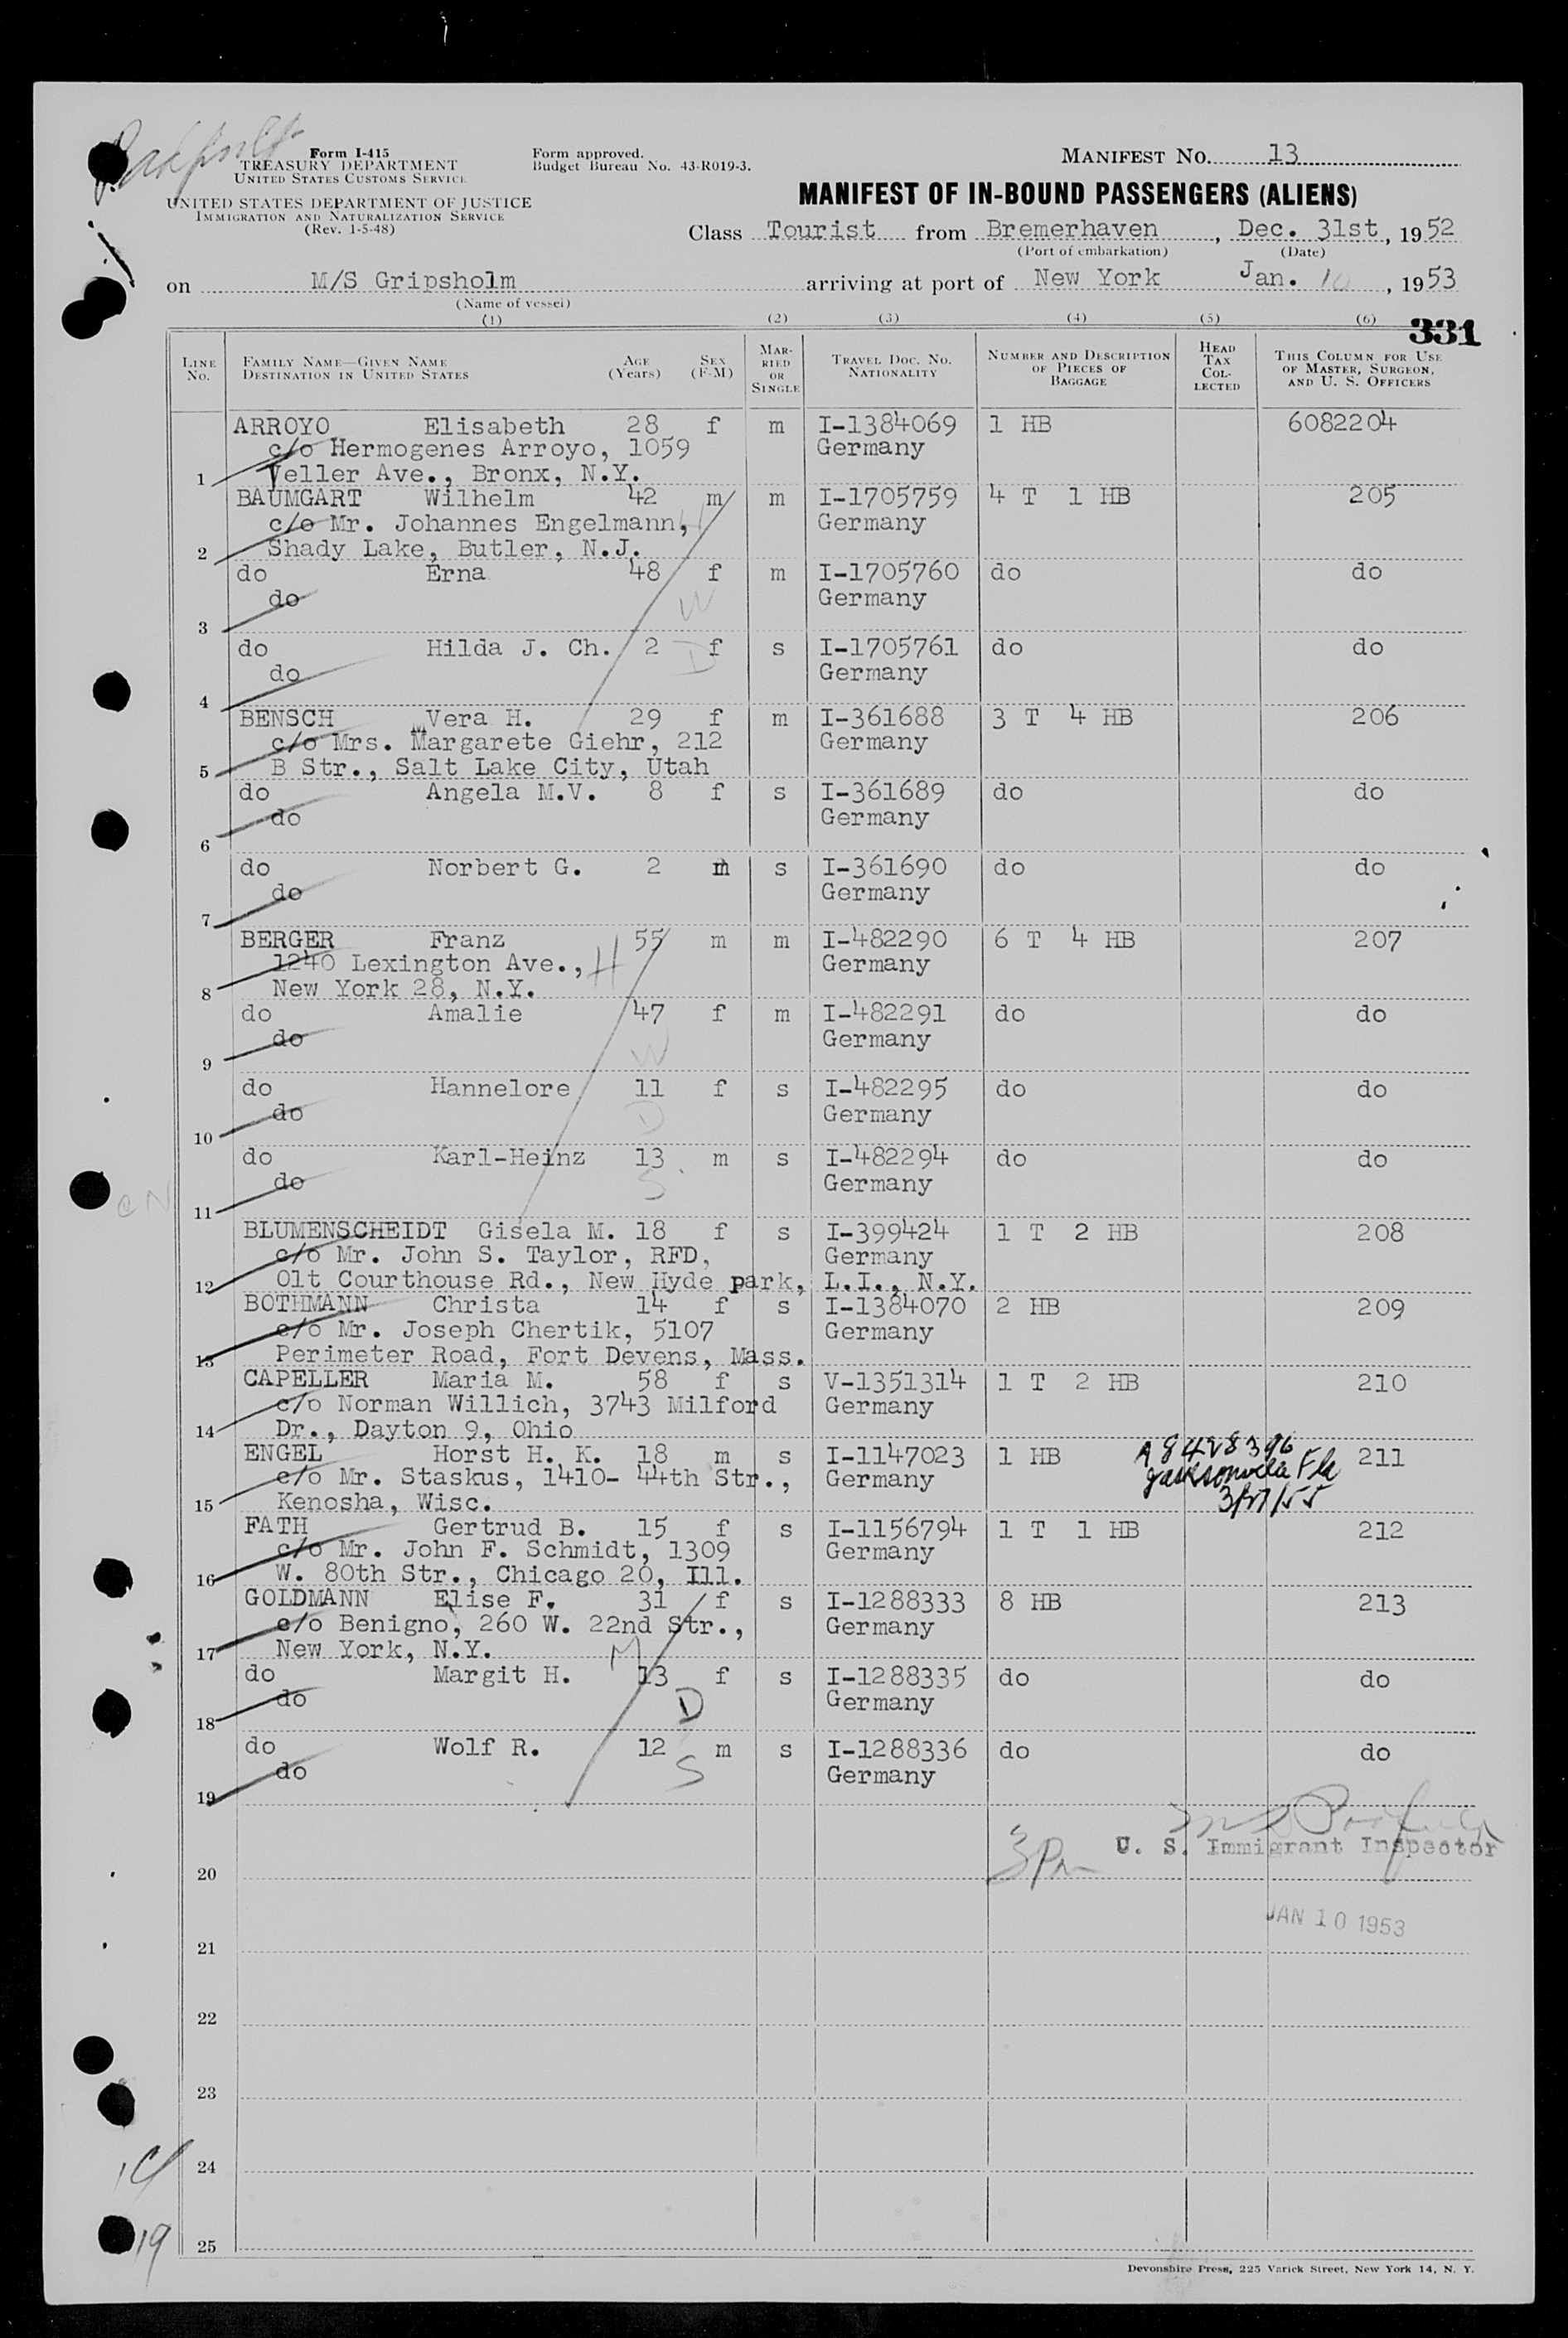 Form I-415
TREASURY DEPARTMENT
UNITED STATES CUSTOMS SERVICE
UNITED STATES DEPARTMENT OF JUSTICE
IMMIGRATION AND NATURALIZATION SERVICE
(Rev. 1-5-48)
Form approved.
Budget Bureau No. 43-R019-3.
MANIFEST NO. 13
MANIFEST OF IN-BOUND PASSENGERS (ALIENS)
Class Tourist from Bremerhaven, Dec. 31st, 1952
(Port of embarkation) (Date)
on M/S Gripsholm arriving at port of New York Jan. 10, 1953
(Name of vessel)
(1) (2) (3) (4) (5) (6)
331
LINE NO. FAMILY NAME—GIVEN NAME DESTINATION IN UNITED STATES AGE (Years) SEX (F-M) MARRIED OR SINGLE TRAVEL DOC. NO. NATIONALITY NUMBER AND DESCRIPTION OF PIECES OF BAGGAGE HEAD TAX COLLECTED THIS COLUMN FOR USE OF MASTER, SURGEON, AND U. S. OFFICERS
ARROYO Elisabeth 28 f m I-1384069 1 HB 6082204
c/o Hermogenes Arroyo, 1059 Germany
1 Teller Ave., Bronx, N.Y.
BAUMGART Wilhelm 42 m m I-1705759 4 T 1 HB 205
c/o Mr. Johannes Engelmann, H Germany
2 Shady Lake, Butler, N.J.
do Erna 48 f m I-1705760 do do
do W Germany
3
do Hilda J. Ch. 2 f s I-1705761 do do
do D Germany
4
BENSCH Vera H. 29 f m I-361688 3 T 4 HB 206
c/o Mrs. Margarete Giehr, 212 Germany
5 B Str., Salt Lake City, Utah
do Angela M.V. 8 f s I-361689 do do
do Germany
6
do Norbert G. 2 m s I-361690 do do
do Germany
7
BERGER Franz 55 m m I-482290 6 T 4 HB 207
1240 Lexington Ave., H Germany
8 New York 28, N.Y.
do Amalie 47 f m I-482291 do do
do W Germany
9
do Hannelore 11 f s I-482295 do do
do D Germany
10
do Karl-Heinz 13 m s I-482294 do do
do S Germany
11
BLUMENSCHEIDT Gisela M. 18 f s I-399424 1 T 2 HB 208
c/o Mr. John S. Taylor, RFD, Germany
12 Olt Courthouse Rd., New Hyde park, L.I., N.Y.
BOTHMANN Christa 14 f s I-1384070 2 HB 209
c/o Mr. Joseph Chertik, 5107 Germany
13 Perimeter Road, Fort Devens, Mass.
CAPELLER Maria M. 58 f s V-1351314 1 T 2 HB 210
c/o Norman Willich, 3743 Milford Germany
14 Dr., Dayton 9, Ohio
ENGEL Horst H. K. 18 m s I-1147023 1 HB A 8428396 211
c/o Mr. Staskus, 1410- 44th Str., Germany Jacksonville Fla
15 Kenosha, Wisc. 3/27/55
FATH Gertrud B. 15 f s I-1156794 1 T 1 HB 212
c/o Mr. John F. Schmidt, 1309 Germany
16 W. 80th Str., Chicago 20, Ill.
GOLDMANN Elise F. 31 f s I-1288333 8 HB 213
c/o Benigno, 260 W. 22nd Str., Germany
17 New York, N.Y. M
do Margit H. 13 f s I-1288335 do do
do D Germany
18
do Wolf R. 12 m s I-1288336 do do
do S Germany
19
3 Pm U. S. Immigrant Inspector
20
JAN 10 1953
21
22
23
24
25
19
Devonshire Press, 225 Varick Street, New York 14, N. Y.